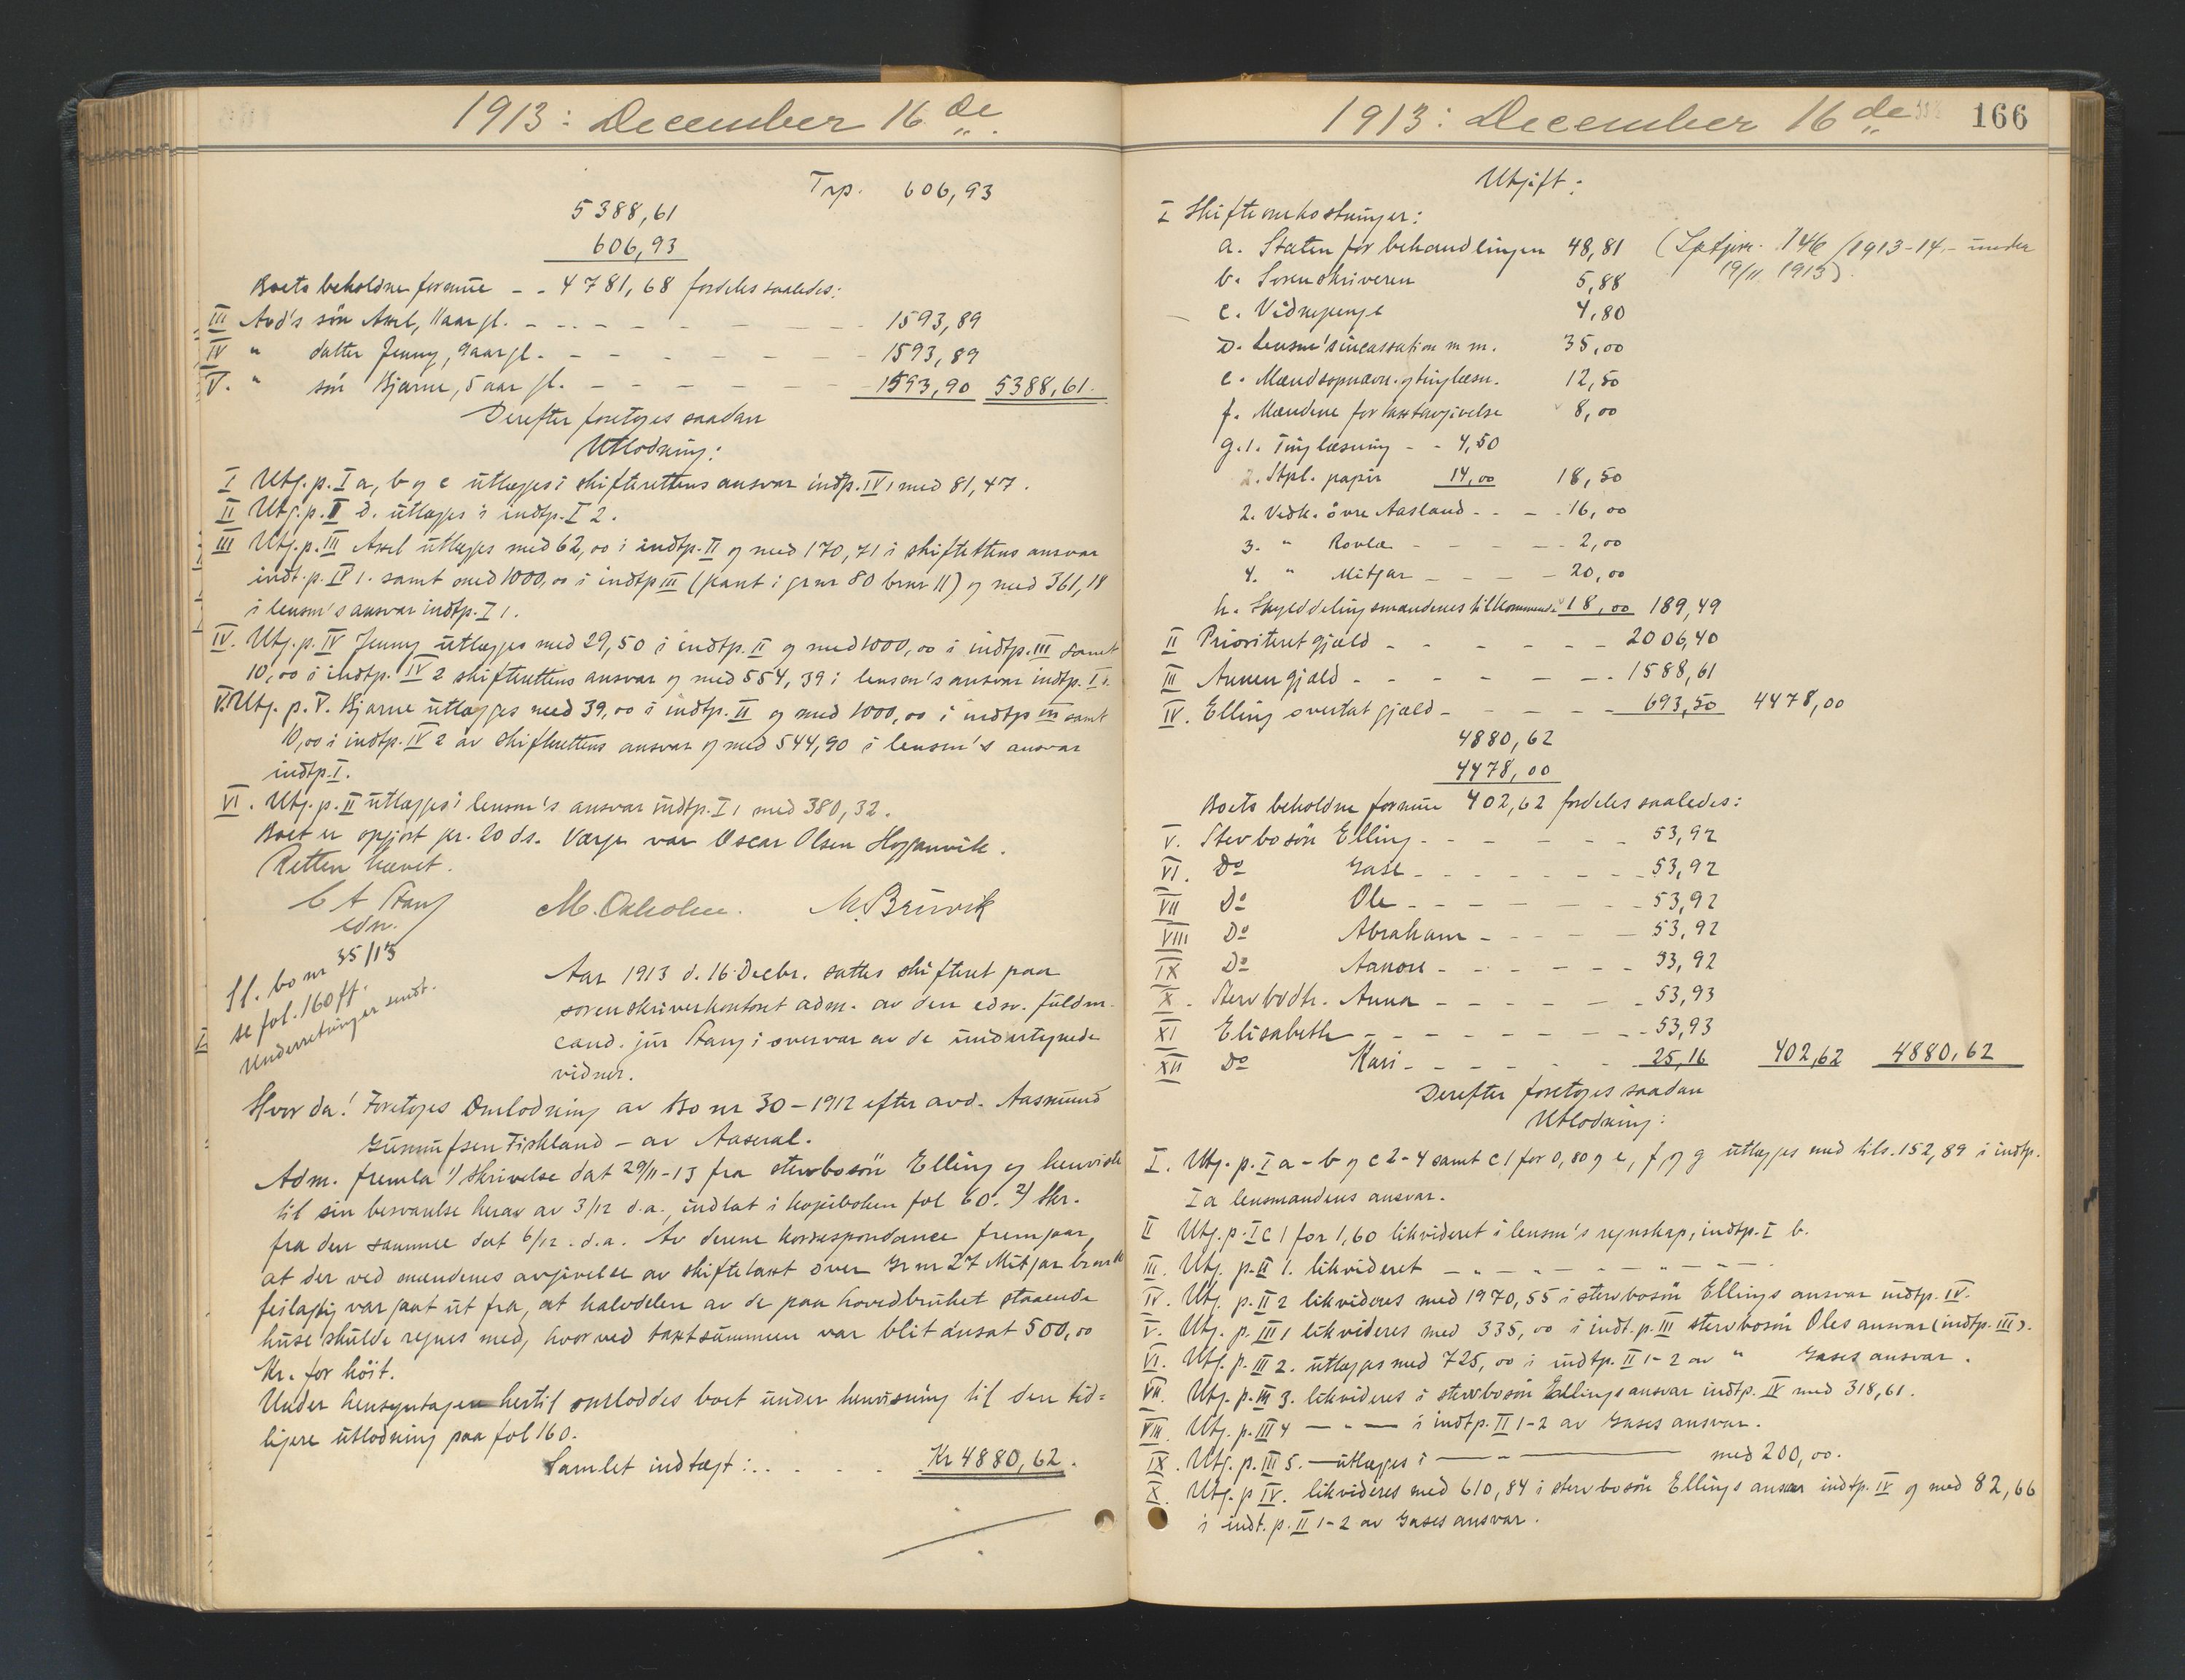 1913: December 16 de
Trp. 606,93
5388,61
606,93
Boets beholdne formue - - 4781,68 fordeles saaledes:
III Avd's sön Axel, 11 aar gl. - - - 1593,89
IV " datter Jenny, 9 aar gl. - - - 1593,89
V. " sön Bjarne, 5 aar gl. - - - 1593,90 5388,61.
Derefter foretoges saadan
Utlodning:
I Utg. p. I a, b og c utlægges i skifterettens ansvar indtp. IV 1 med 81,47.
II Utg. p. II d. utlægges i indtp. I 2.
III Utg. p. III Axel utlægges med 62,00 i indtp. II og med 170,71 i skifterettens ansvar
indt. p. IV 1. samt med 1000,00 i indtp III (pant i gr nr 80 brnr 11) og med 361,18
i lensm's ansvar indtp. I 1.
IV. Utg. p. IV Jenny utlægges med 29,50 i indtp. II og med 1000,00 i indtp. III samt
10,00 i indtp. IV 2 skifterettens ansvar og med 554,39 i lensm's ansvar indtp. I 1.
V. Utg. p. V. Bjarne utlægges med 39,00 i indtp. II og med 1000,00 i indtp III samt
10,00 i indtp. IV 2 av skifterettens ansvar og med 544,90 i lensm's ansvar
indtp. I.
VI. Utg. p. II utlægges i lensm's ansvar indtp. I 1 med 380,32.
Boet er opgjort pr. 20 ds. Værge var Oscar Olsen Høgganvik.
Retten hævet.
C A Stang M. Oxholm. M. Bruvik
edsv.
Sl. bo nr 35/13
se fol. 160 ff.
Underretninger sendt.
Aar 1913 d. 16 Decbr. sattes skifteret paa
sorenskriverkontoret adm. av den edsv. fuldm.
cand. jur Stang i overvær av de undertegnede
vidner.
Hvor da! Foretoges Omlodning av Bo nr 30 - 1912 efter avd. Aasmund
Gunnufsen Fiskland - av Aaseral.
Adm. fremla 1/ Skrivelse dat 29/11-13 fra stervbosön Elling og henviste
til sin besvarelse herav av 3/12 d.a., indtat i kopiboken fol 60. 2/ Skr.
fra den samme dat 6/12. d.a. Av denne korrespondance fremgaar,
at der ved mændenes avgivelse av skiftetaxt over Gr nr 27 Mitgar brnr
feilagtig var gaat ut fra, at halvdelen av de paa hovedbruket staaende
huse skulde regnes med, hvorved taxtsummen var blit ansat 500,00
Kr. for höit.
Under hensyntagen hertil omloddes boet under henvisning til den tid=
ligere utlodning paa fol 160.
Samlet indtægt: . . . . Kr 4880,62.
1913: December 16 de 166
Utgift:
I Skifteomkostninger:
a. Staten for behandlingen 48,81 (Sptjour. 146/1913-14 - under
b. Sorenskriveren 5,88 19/11 1913)
c. Vidnepenge 4,80
d. Lensm's incassation m m. 35,00
e. Mændsopnævn. og tinglæsn. 12,50
f. Mændene for taxtavgivelse 8,00
g. 1. Tinglæsning - - 4,50
2. Stpl. papir 14,00 18,50
2. Vedk. övre Aasland - - - 16,00
3. " Rovla - - - 2,00
4. " Mitgar - - - 20,00
h. Skylddelingsmændenes tilkommende 18,00 189,49
II Prioritert gjæld - - - 2006,40
III Annen gjæld - - - 1588,61
IV. Elling overtat gjæld - - - 693,50 4478,00
4880,62
4478,00
Boets beholdne formue 402,62 fordeles saaledes:
V. Stervbosön Elling - - - 53,92
VI. Do Gase - - - 53,92
VII Do Ole - - - 53,92
VIII Do Abraham - - - 53,92
IX Do Aanon - - - 53,92
X. Stervbodtr. Anna - - - 53,93
XI Elisabeth - - - 53,93
XII Do Kari - - - 25,16 402,62 4880,62
Derefter foretoges saadan
Utlodning:
I. Utg. p. I a - b og c 2-4 samt c 1 for 0,80 og e, f og g utlægges med tils. 152,89 i indtp.
I a lensmandens ansvar.
II Utg. p. I c 1 for 1,60 likvideret i lensm's regnskap, indtp. I b.
III. Utg. p. II 1. likvideret - " - " - " -
IV. Utg. p. II 2 likvideres med 1970,55 i stervbosön Ellings ansvar indtp. IV.
V. Utg. p. III 1 likvideres med 335,00 i indt. p. III stervbosön Oles ansvar (indtp. III).
VI. Utg. p. III 2. utlægges med 725,00 i indtp. II 1-2 av " Gases ansvar.
VII. Utg. p. III 3. likvideres i stervbosön Ellings ansvar indtp. IV med 318,61.
VIII. Utg. p. III 4 — " — i indtp. II 1-2 av Gases ansvar.
IX. Utg. p. III 5. — utlægges i — " — med 200,00.
X. Utg. p IV. likvideres med 610,84 i stervbosön Ellings ansvar indtp. IV og med 82,66
i indt. p. II 1-2 av Gases ansvar.